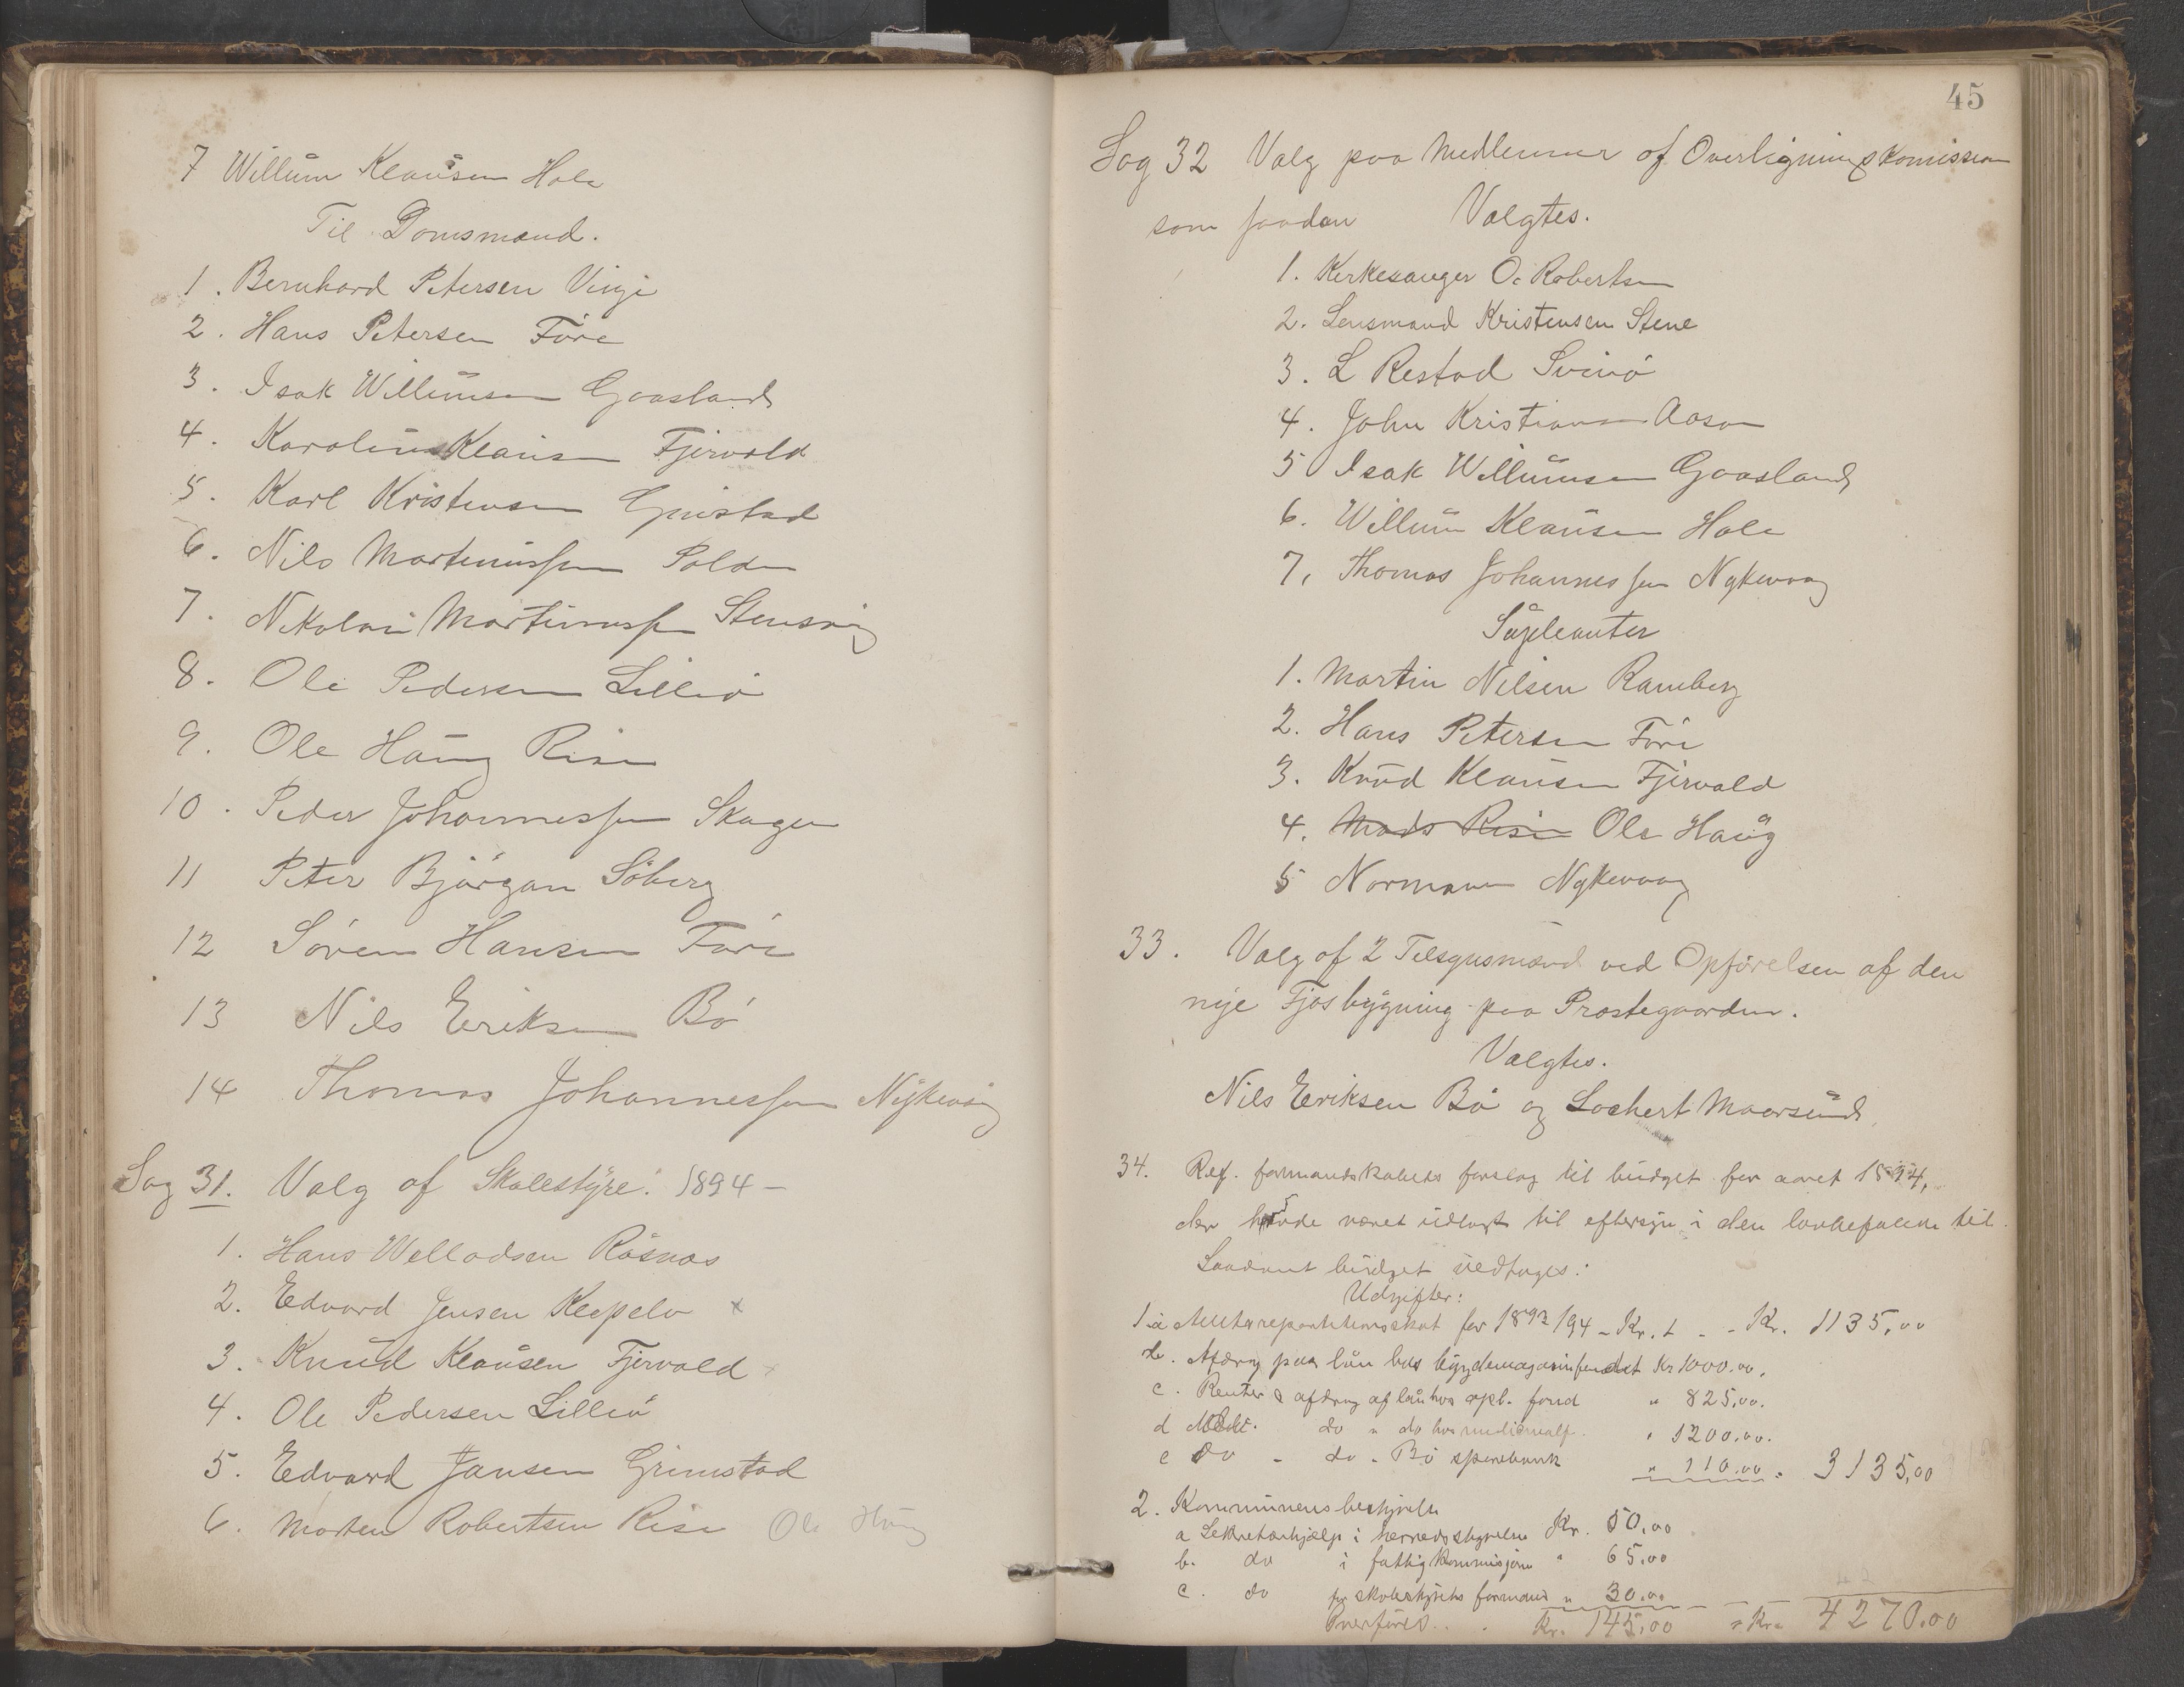 7 Willum Klausen Hole
Til Domsmænd.
1. Bernhard Petersen Vinje
2. Hans Petersen Före
3. Isak Willumsen Gaasland
4. Karolius Klausen Fjærvold
5. Karl Kristensen Grimstad
6. Nils Martinussen Polden
7. Nikolai Martinussen Stensvig
8. Ole Pedersen Lilleö
9. Ole Haug Risen
10. Peder Johannessen Skagen
11 Peter Björgan Söberg
12 Sören Hansen Före
13 Nils Eriksen Bö
14 Thomas Johannessen Nykevaag
Sag 31. Valg af Skolestyre. 1894 –
1. Hans Welladsen Rösnæs
2. Edvard Jensen Klepelv x
3. Knud Klausen Fjærvold x
4. Ole Pedersen Lilleö
5. Edvard Jansen Grimstad
6. Morten Robertsen Rise Ole Haug
45
Sag 32 Valg paa Medlemmer af Overligningskomission
som saadan Valgtes.
1. Kirkesanger O. Robertsen
2. Lensmand Kristensen Stene
3. L Restad Svinö
4. John Kristiansen Aasan
5 Isak Willumsen Gaasland
6. Willum Klausen Hole
7. Thomas Johannessen Nykevaag
Supleanter
1. Martin Nilsen Ramberg
2. Hans Petersen Före
3. Knud Klausen Fjærvold
4. Mads Risen Ole Haug
5 Normann Nykevaag
33. Valg af 2 Tilsynsmænd ved Opförelsen af den
nye Fjøsbygning paa Prostegaarden.
Valgtes.
Nils Eriksen Bö og Lochert Maarsund
34. Ref. formandskabets forslag til budget for aaret 1894,
der havde været udlagt til eftersyn i den lovbefalede tid.
Saadant budget vedtoges:
Udgifter:
1 a Amtsrepartitionsskat for 1893/94 – Kr. – – Kr. 1135,00
b. Afdrag paa lån hos bygdemagasinfondet Kr 1000.00.
c. Renter & afdrag af lån hos opl. fond " 825,00.
d do " do hos medicinalf. " 1200.00.
e do – do – Bö sparebank " 110.00 = 3135,00
2. Kommunens bestyrelse
a Sekretærhjælp i herredsstyrelsen Kr. 50,00
b. do i fattigkommisjonen " 65,00
c. do for skolestyrets formand " 30.00
Overföres . . Kr. 145,00 = Kr. 4270.00